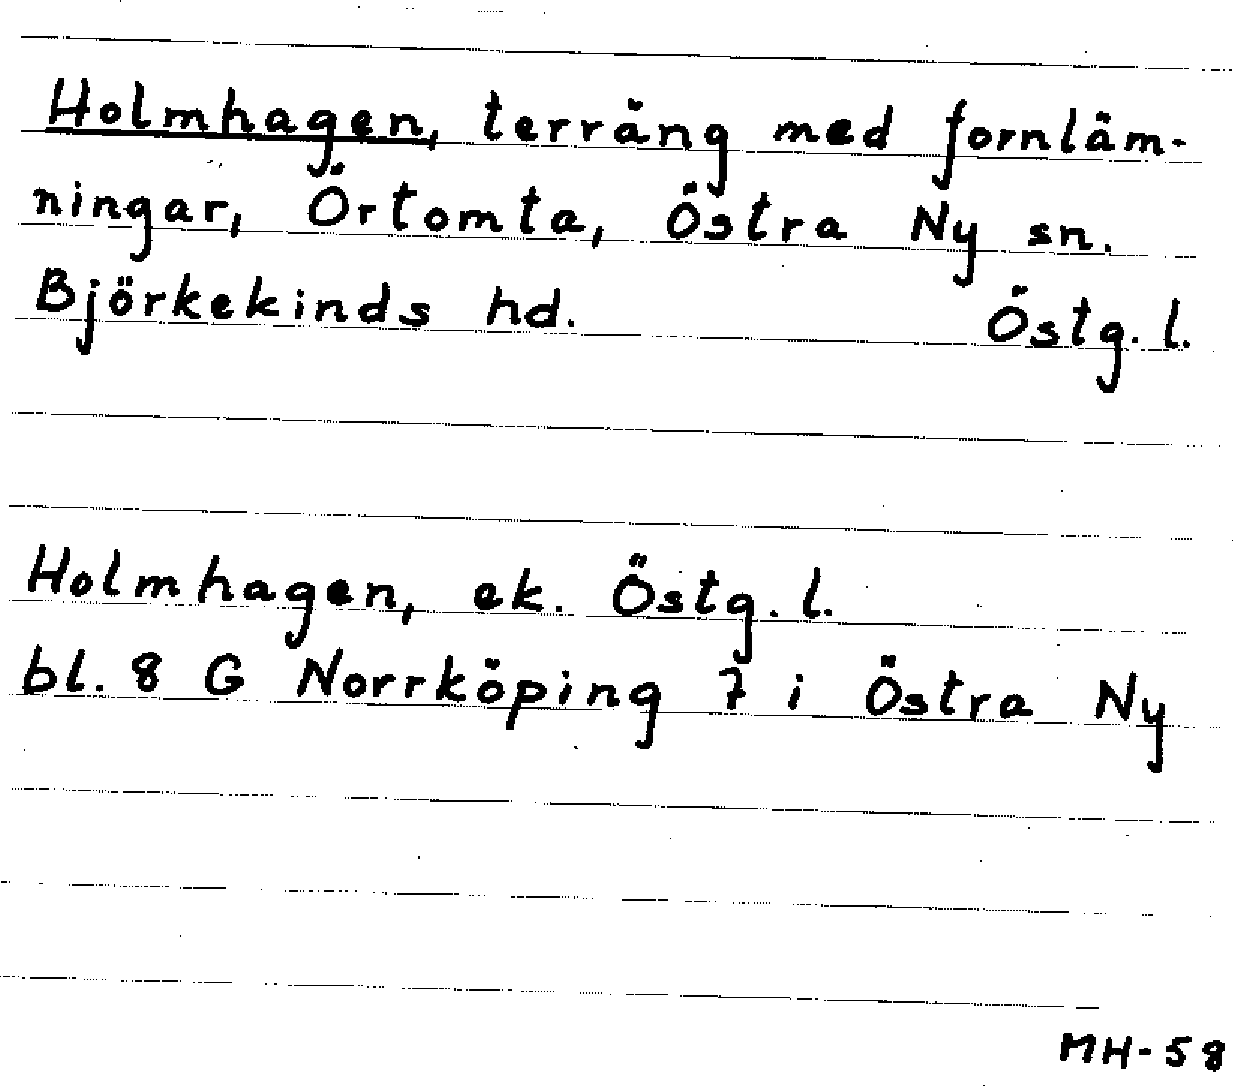 Holmhagen, terräng med fornläm-
ningar, Örtomta, Östra Ny sn.
Björkekinds hd. Östg. l.
Holmhagen, ek. Östg. l.
bl. 8 G Norrköping 7 i Östra Ny
MH-58